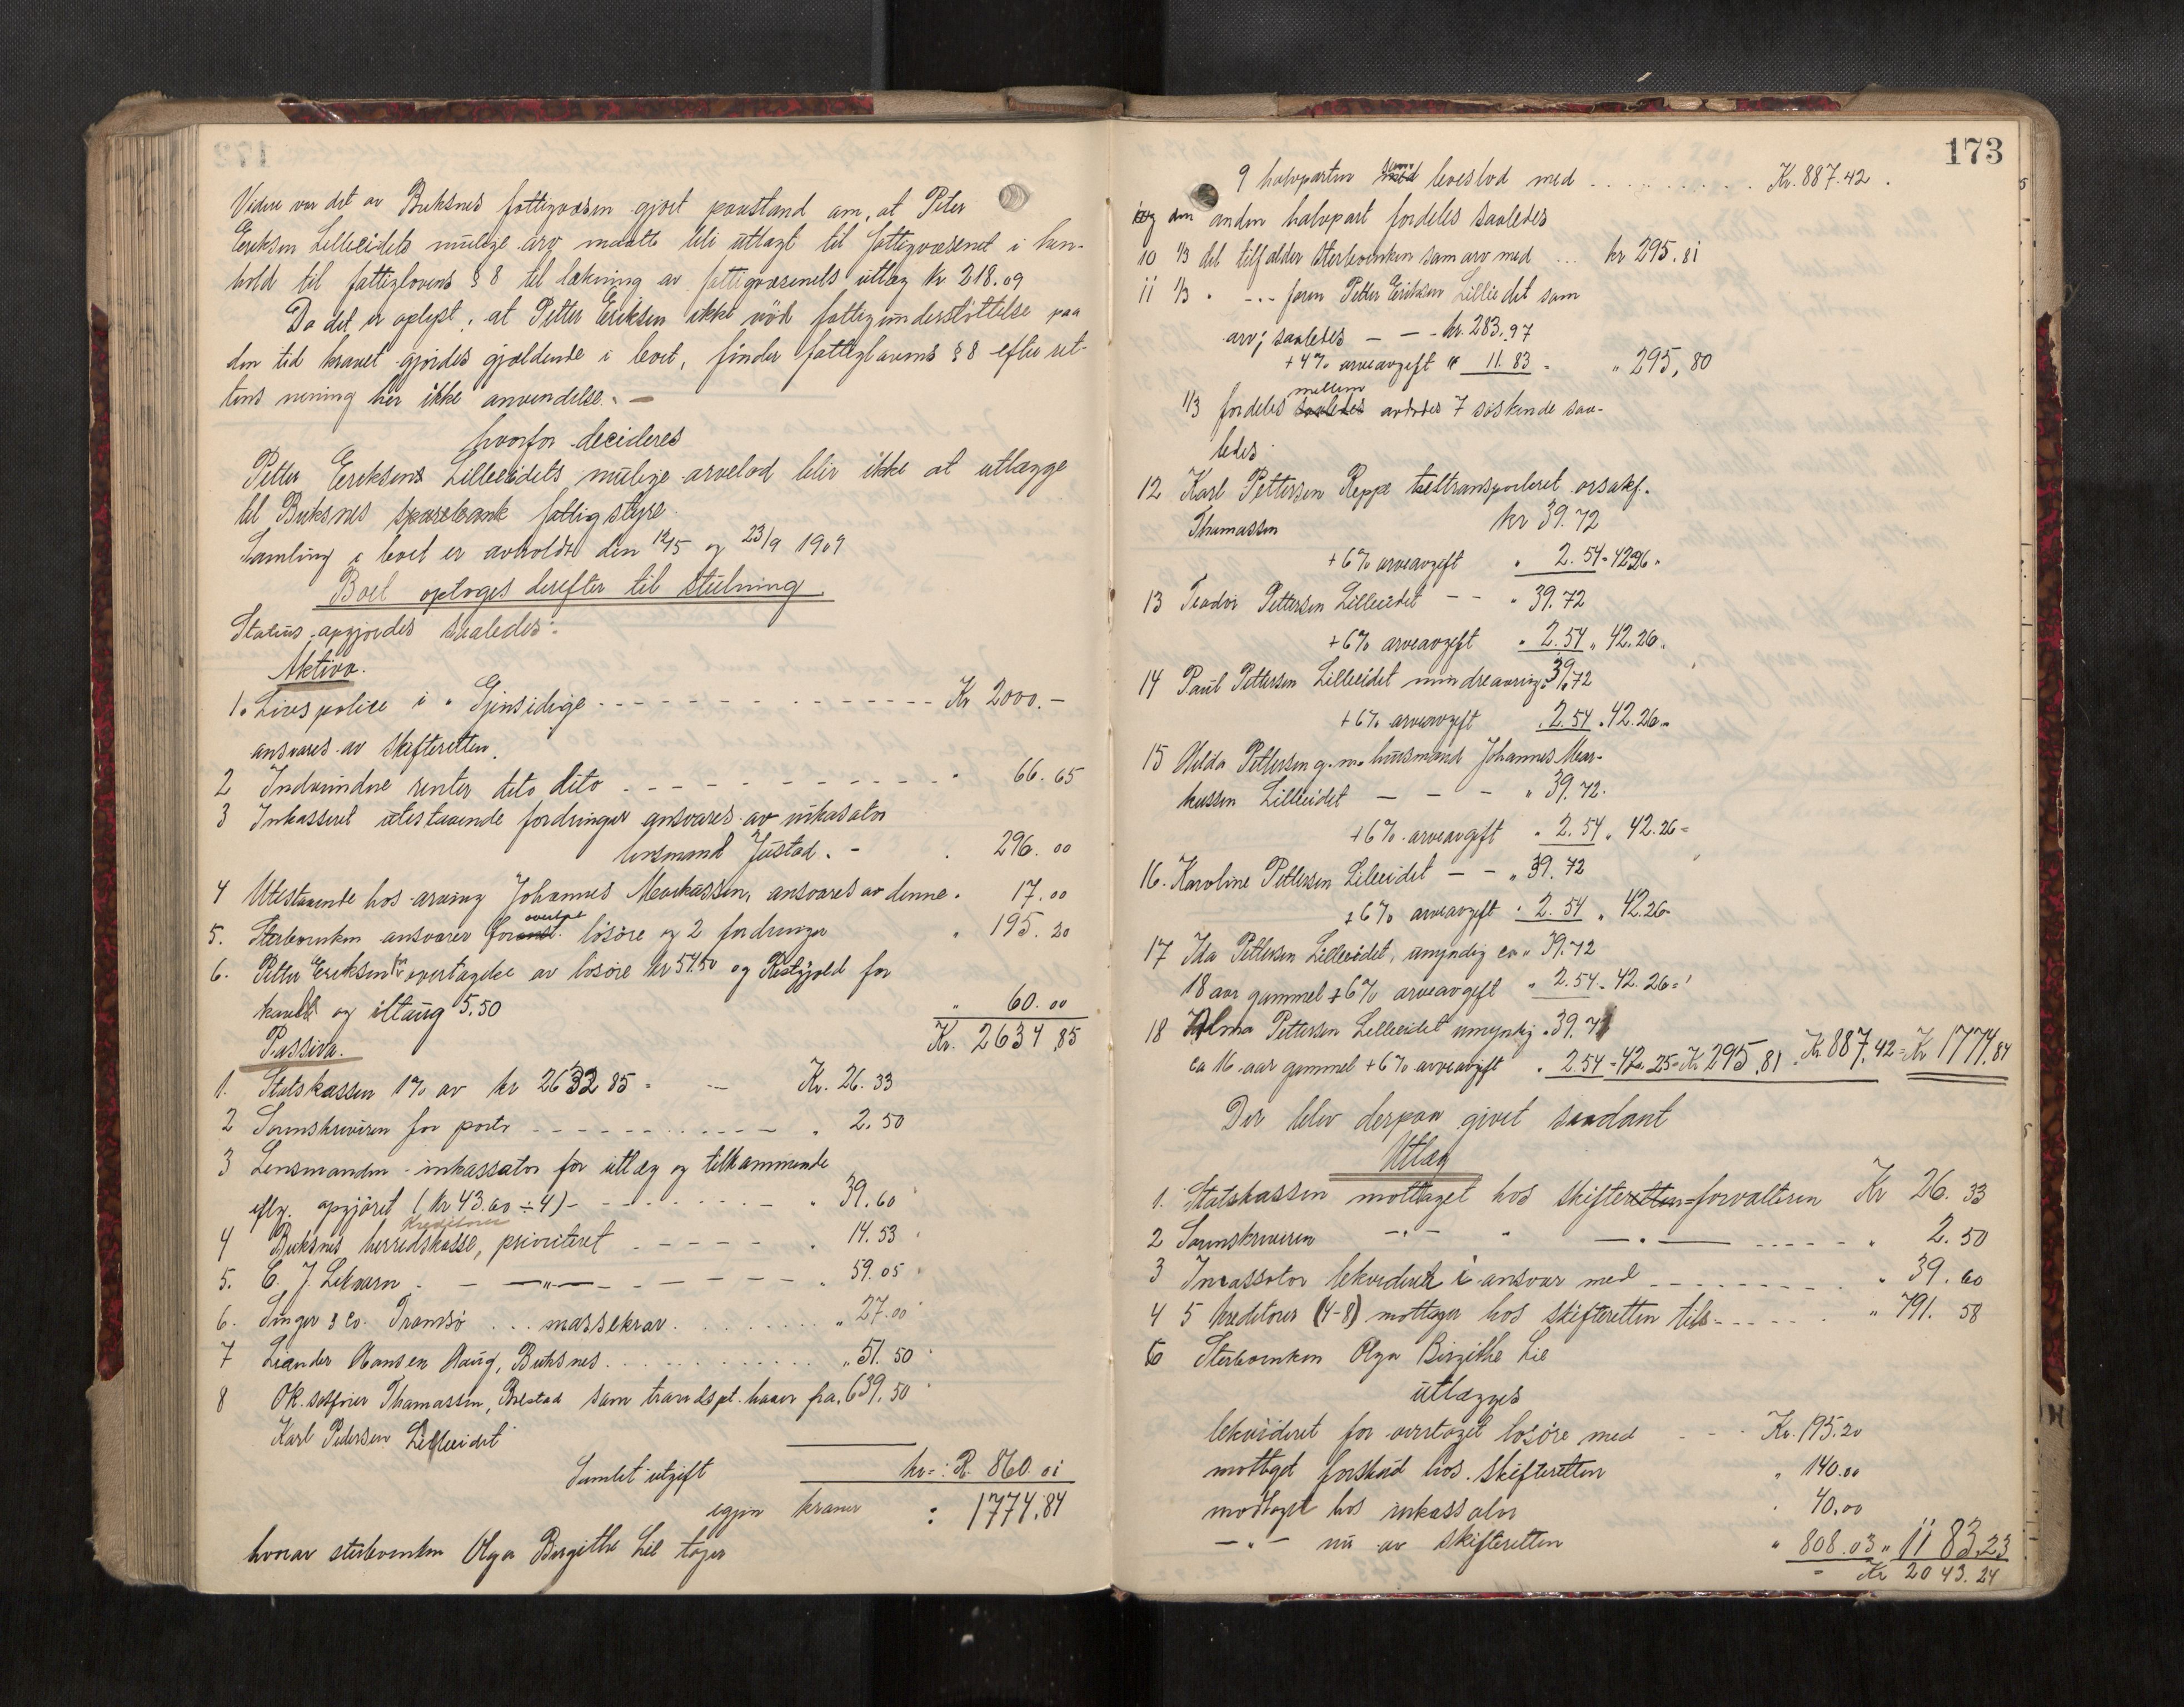 Videre var det av Buksnes fattigvæsen gjort paastand om, at Peter
Eriksen Lilleeidets mulige arv maatte bli utlagt til fattigvæsenet i hen-
hold til fattiglovens § 8 til dækning av fattigvæsenets utlæg kr 218.09
Da det er oplyst, at Petter Eriksen ikke nöd fattigunderstöttelse paa
den tid kravet gjordes gjældende i boet, finder fattiglovens § 8 efter ret-
tens mening her ikke anvendelse. —
hvorfor decideres
Petter Eriksens Lilleeidets mulige arvelod blir ikke at utlægge
til Buksnes sparebank fattigstyre.
Samling i boet er avholdt den 12/5 og 23/9 1909
Boet optoges derefter til slutning.
Status opgjordes saaledes:
Aktiva.
1. Livspolice i "Gjensidige - - - - - - Kr 2000.—
ansvares av skifteretten.
2 Indvundne renter dito dito - - - - - " 66.65
3 Inkasseret utestaaende fordringer ansvares av inkasator
lensmand Justad. - " 296.00
4 Utestaaende hos arving Johannes Markussen, ansvares av denne " 17.00
5. Sterboenken ansvarer for overtat lösöre og 2 fordringer " 195.20
6. Petter Eriksen for overtagelse av lösöre kr 54.50 og Restgjæld for
og 5.50 " 60.00
Kr. 2634,85
Passiva.
1. Statskassen 1% av kr 2632 85 = — Kr. 26.33
2 Sorenskriveren for porto - - - - - " 2.50
3 Lensmanden - inkassator for utlæg og tilkommende
eflg. opgjöret (kr 43.60 ÷ 4) - - - - " 39.60
Kreditorer
4 Buksnes herredskasse, prioriteret - - - - " 14.53
5. E. J. Leknæsn - - — " — - - - - " 59.05
6. Singer & Co. Tromsö . . . massekrav. . . . . " 27.00
7 Leander Hansen Haug, Buksnes. . . . . . " 51.50
8 OR. sakförer Thomassen, som transpt. haver fra " 639.50
Karl Pedersen Lilleeidet
Samlet utgift kr-: R. 860.01
igjen kroner : 1774.84
hvorav sterboenken Olga Birgithe Lie tager
173
9 halvparten som boeslod med . . . . . . . Kr. 887.42.
og den anden halvpart fordeles saaledes
10 1/3 del tilfalder sterboenken som arv med ... kr 295.81
11 1/3 " - . - faren Petter Eriksen Lilleeidet som
arv; saaledes — — - kr. 283.97
+4% arveavgift " 11.83 = " 295,80
1/3 fordeles mellem avdödes 7 söskende saa-
ledes
12 Karl Pettersen Reppe tiltransporteret orsakf.
Thomassen kr 39.72
+6% arveavgift " 2.54 = 42.26 "
13 Teodor Pettersen Lilleeidet — — " 39.72
+6% arveavgift " 2.54 " 42.26 "
14 Paul Pettersen Lilleeidet mindreaarig " 39.72
+6% arveavgift " 2.54 " 42.26 "
15 Hilda Pettersen g. m. husmand Johannes Mar-
kussen Lilleeidet — — — " 39.72.
+6% arveavgift " 2.54 " 42.26 =
16. Karoline Pettersen Lilleeidet — — " 39.72
+6% arveavgift " 2.54 " 42.26
17 Ida Pettersen Lilleeidet, umyndig ca " 39.72
18 aar gammel +6% arveavgift " 2.54 = 42.26 = '
18 Alma Pettersen Lilleeidet umyndig " 39.71
ca 16 aar gammel +6% arveavgift " 2.54 = 42.25 = Kr 295.81 . Kr 887.42 = Kr 1774.84
Der blev derpaa givet saadant
Utlæg
1. Statskassen mottaget hos skifteretten=forvalteren Kr 26.33
2 Sorenskriveren — " — " — " — - - - - " 2.50
3 Incassator lekvideret i ansvar med - - - - " 39.60
4 5 kreditorer (4-8) mottager hos skifteretten tils - - - " 791.58
6 Sterboenken Olga Birgithe Lie
utlægges
lekvideret for overtaget lösöre med - - - Kr. 195.20
mottaget forskud hos skifteretten " 140.00
modtaget hos inkassator " 40.00
— " — nu av skifteretten " 808.03 " 1183.23
= Kr 2043.24